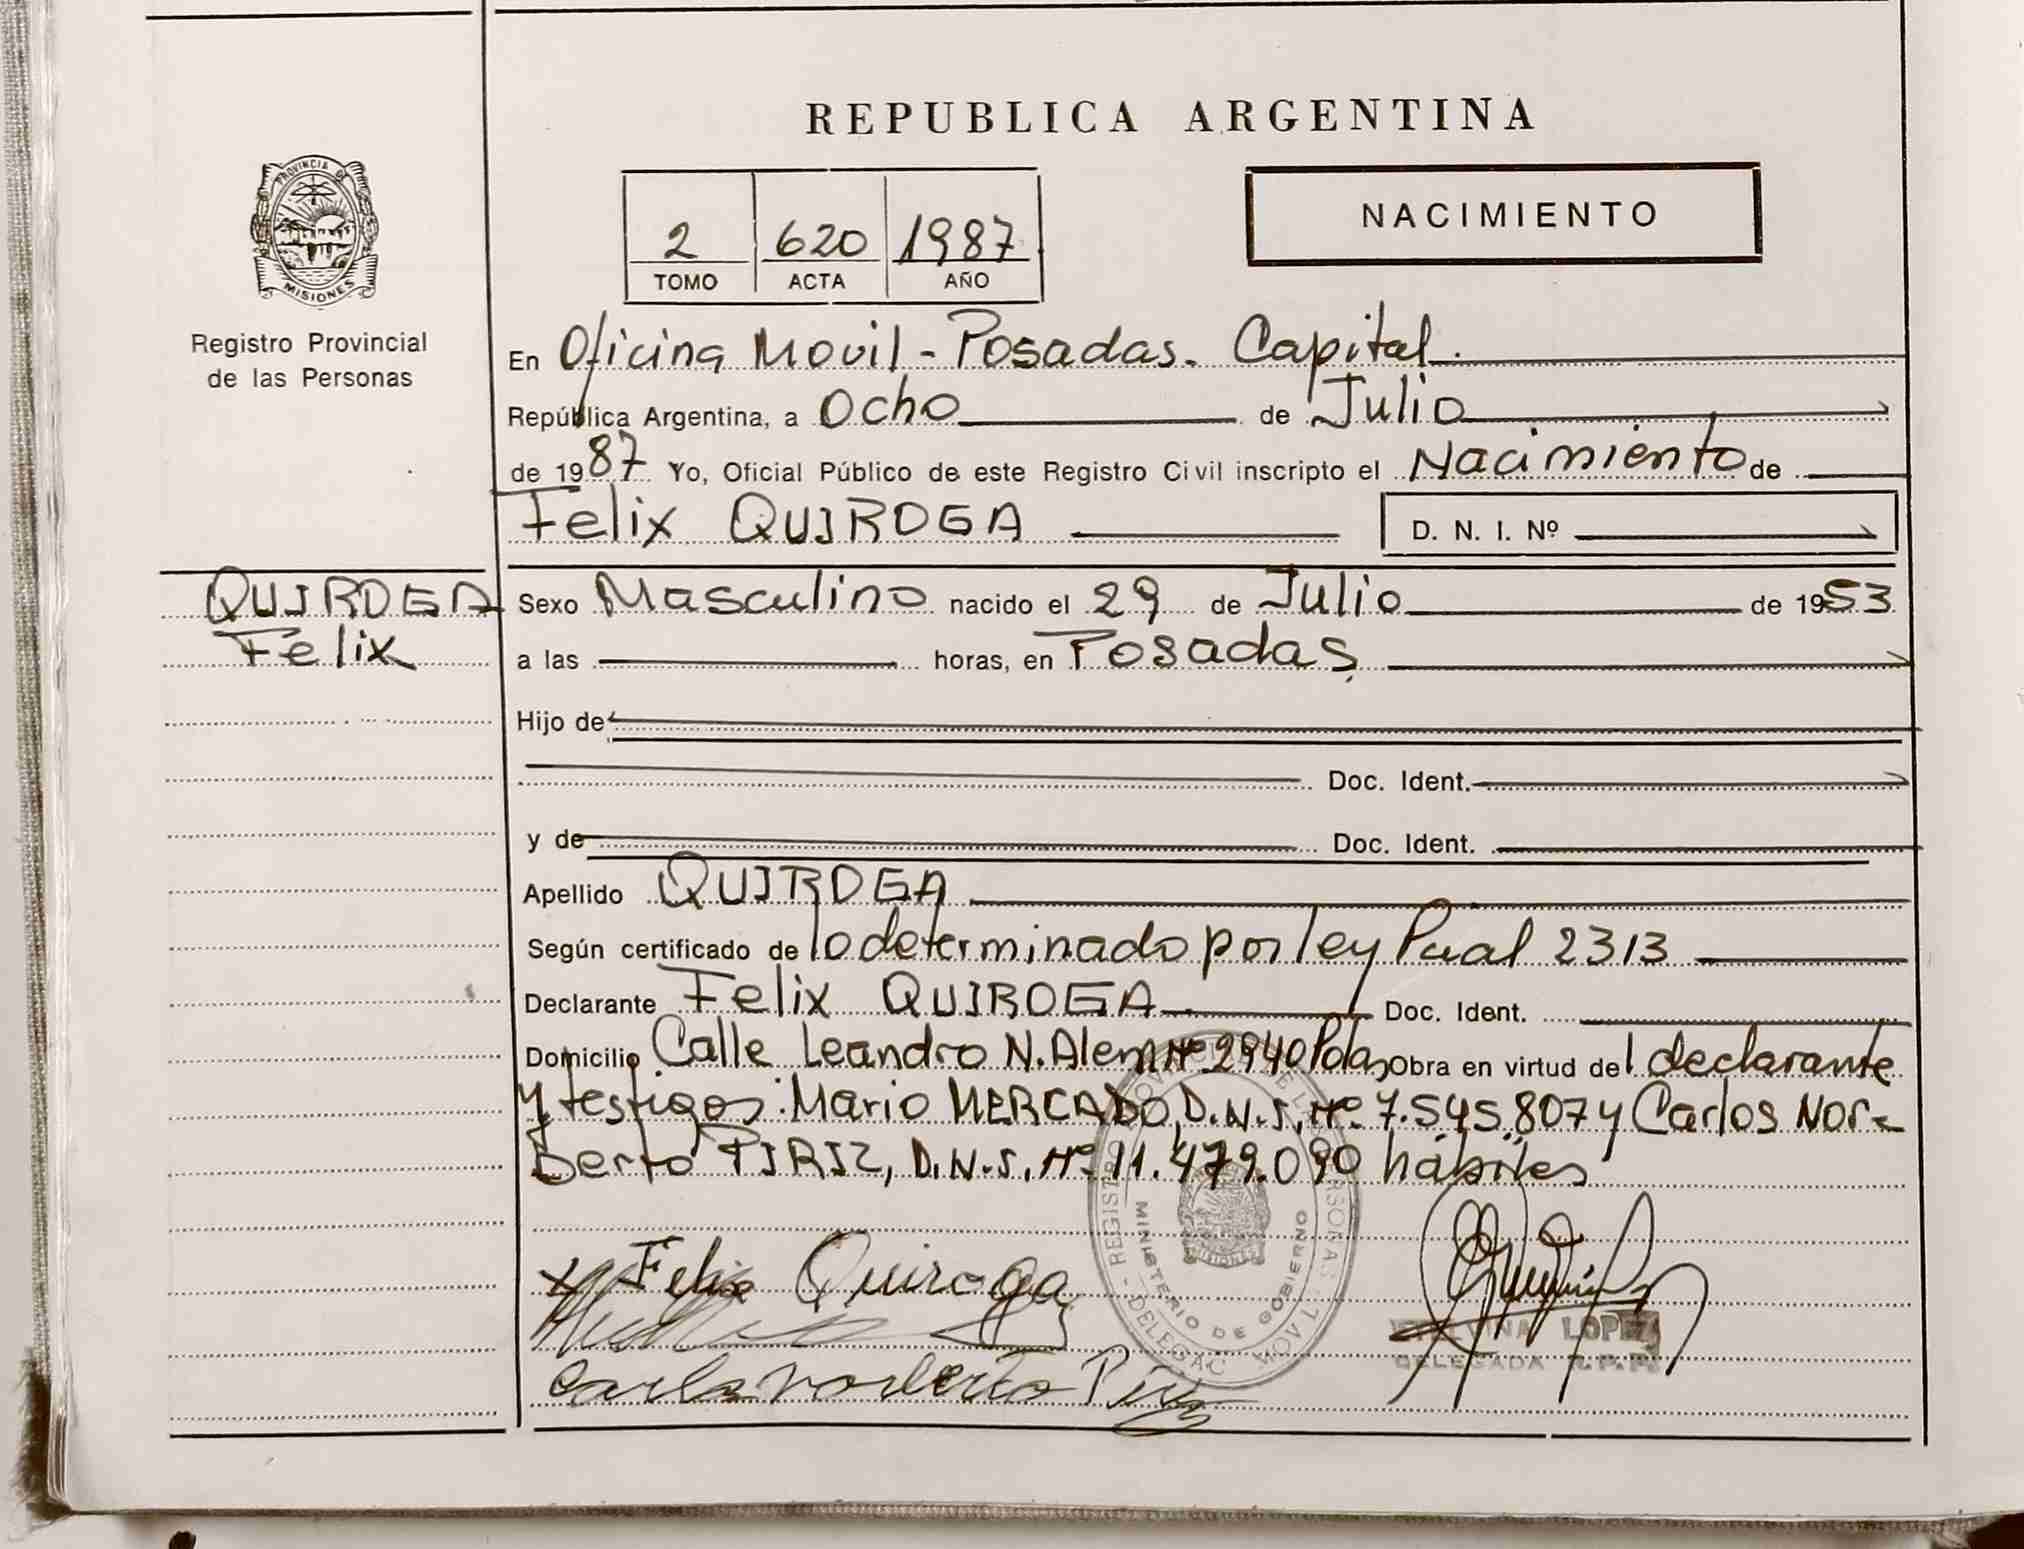 REPUBLICA ARGENTINA
PROVINCIA DE
MISIONES
Registro Provincial
de las Personas
2 620 1987
TOMO ACTA AÑO
NACIMIENTO
En Oficina Movil - Posadas. Capital.
República Argentina, a Ocho de Julio
de 1987 Yo, Oficial Público de este Registro Civil inscripto el Nacimiento de
Felix QUIROGA D. N. I. Nº
QUIROGA
Felix
Sexo Masculino nacido el 29 de Julio de 1953
a las horas, en Posadas
Hijo de
Doc. Ident.
y de Doc. Ident.
Apellido QUIROGA
Según certificado de lo determinado por ley Pcial 2313
Declarante Felix QUIROGA Doc. Ident.
Domicilio Calle Leandro N. Alem Nº 2940 Pdas Obra en virtud del declarante
y testigos: Mario MERCADO, D.N.I. Nº 7.545.807 y Carlos Nor-
berto PIRIZ, D.N.I. Nº 11.479.090 hábiles
x Felix Quiroga
Carlos Norberto Piriz
MINISTERIO DE GOBIERNO
LOPEZ
DELEGADA R.P.P.